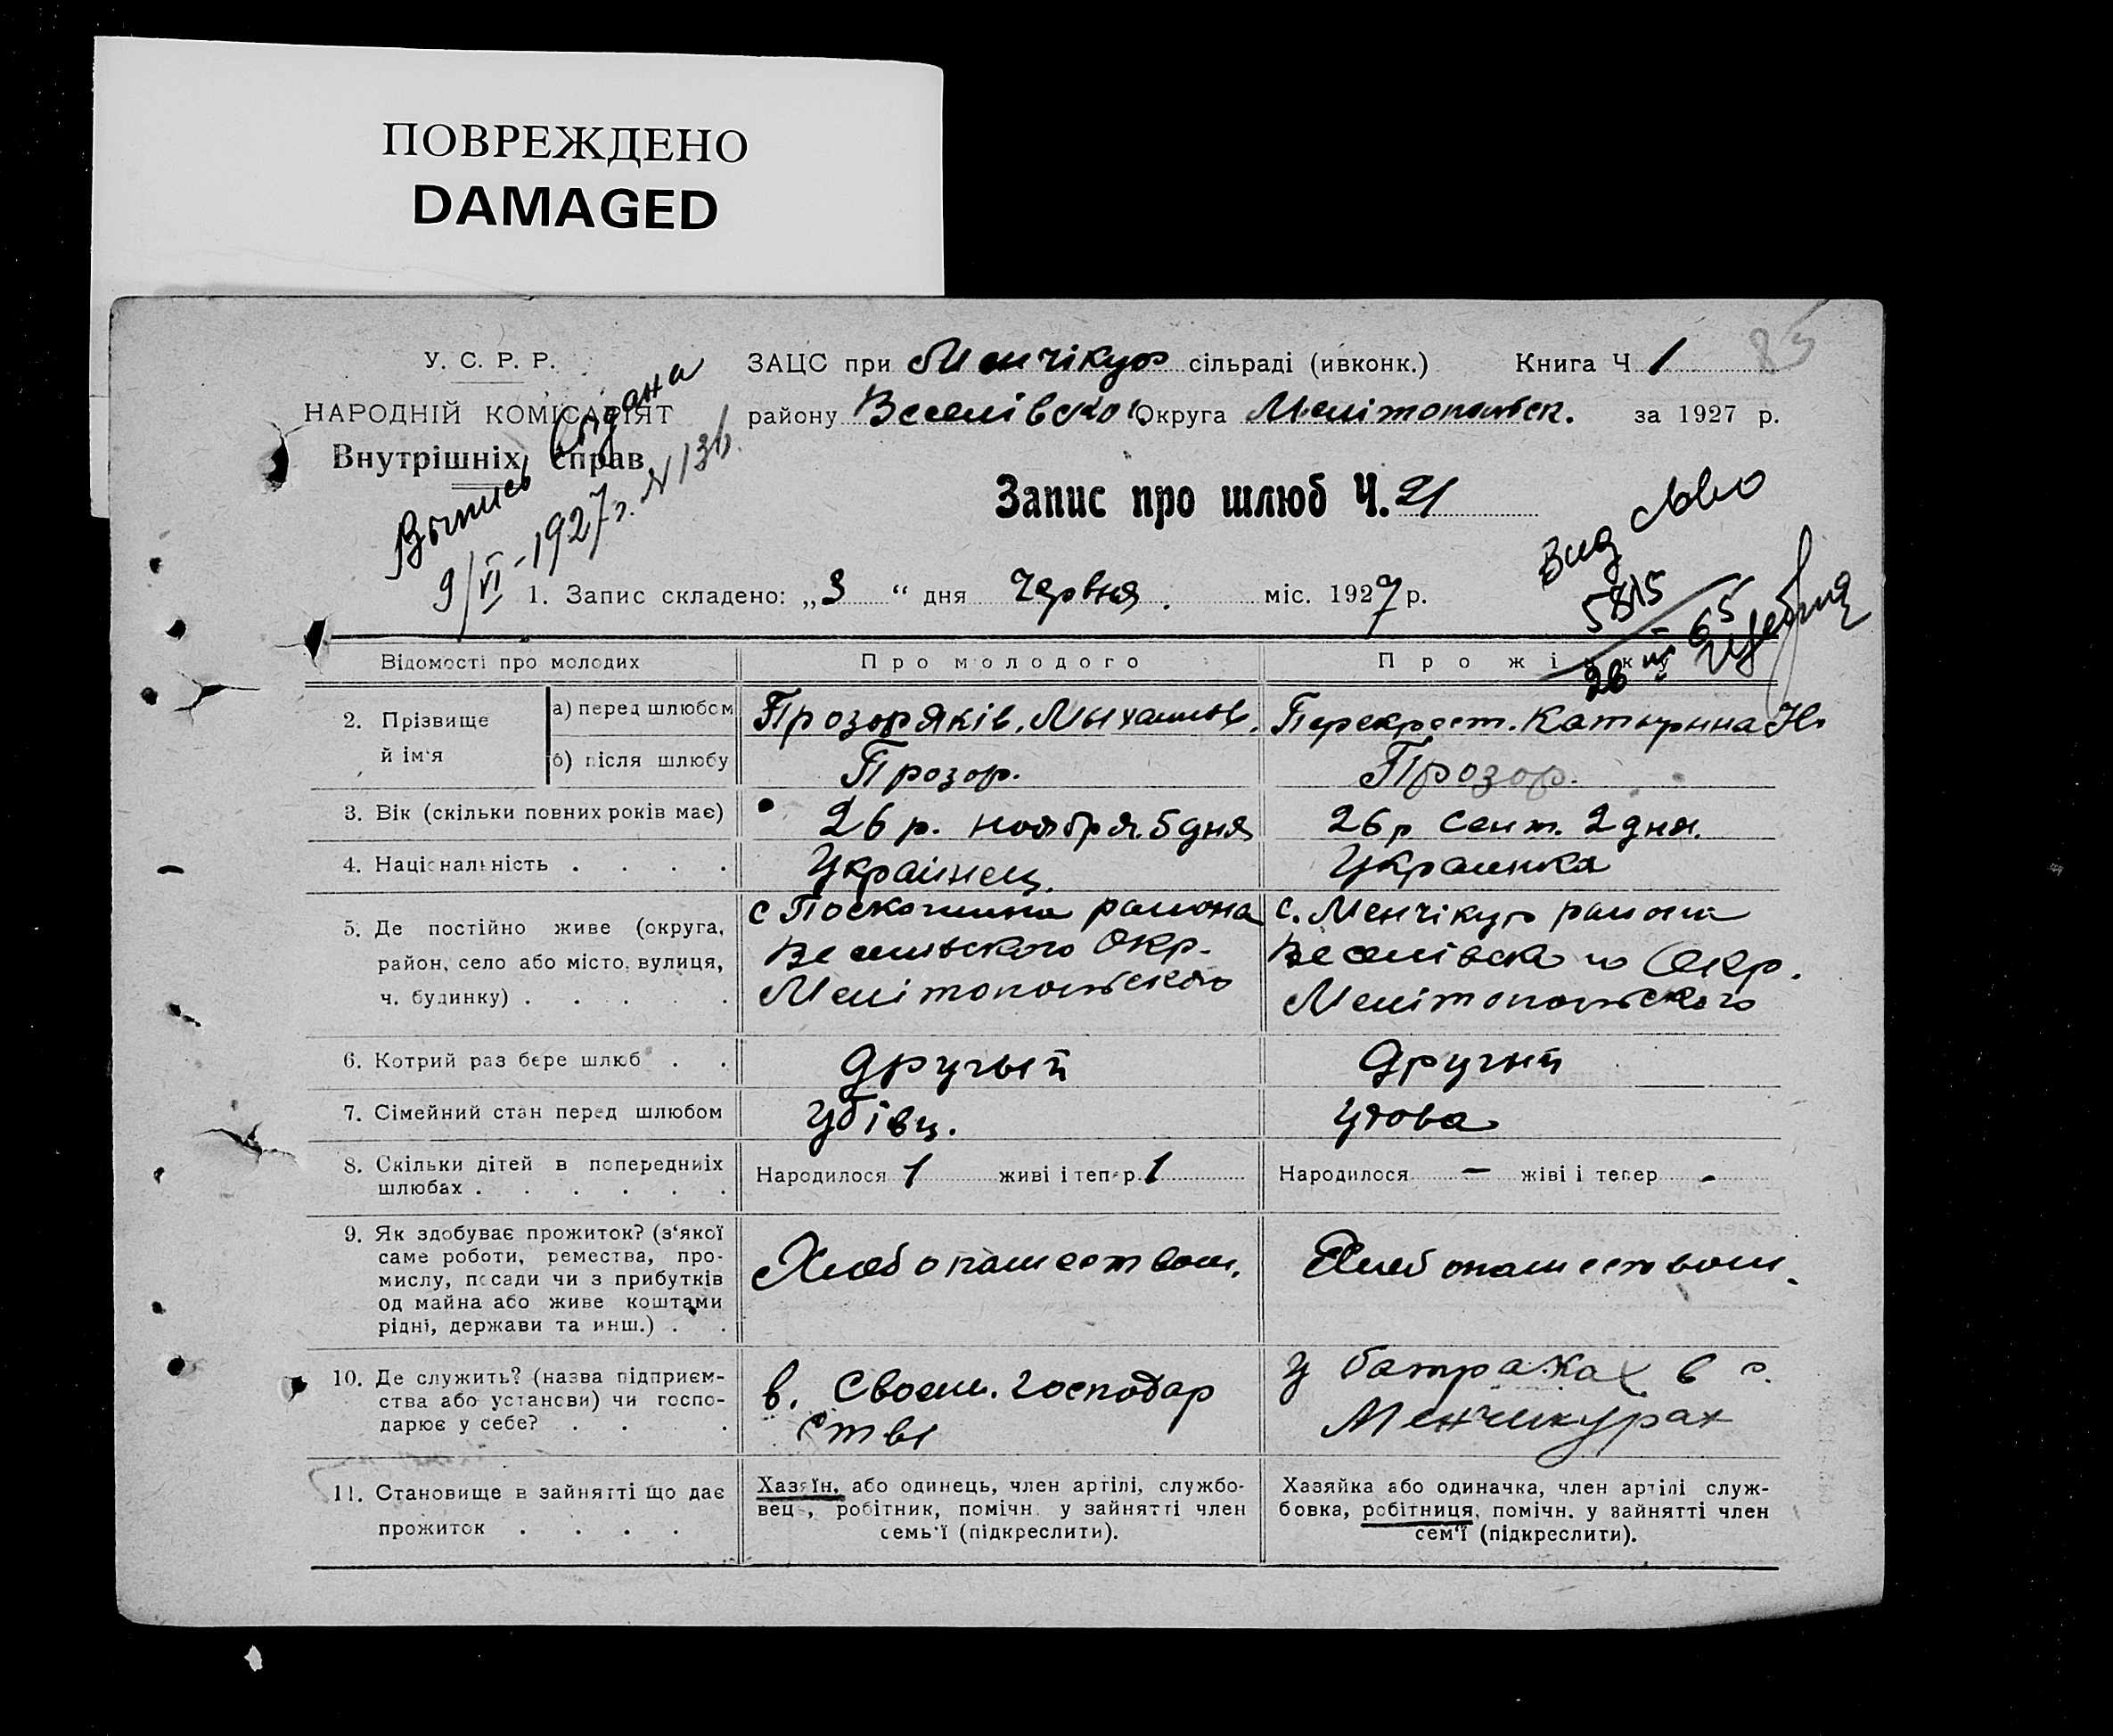 ПОВРЕЖДЕНО
DAMAGED
85
У. С. Р. Р.
НАРОДНІЙ КОМІСАРІЯТ
Внутрішніх справ
Выпись видана
9/VI-1927 г. N 136.
ЗАЦС при Менчікур сільраді (ивконк.) Книга Ч 1
району Веселівсько Округа Мелітопольск. за 1927 р.
Запис про шлюб Ч. 21
Вид
5815
26 65
1. Запис складено: „3“ дня Червня. міс. 1927 р.
Відомості про молодих Про молодого Про жінку
2. Прізвище й ім'я
а) перед шлюбом Прозор Яків. Мыхайлов. Перекрест. Катырина Н.
б) після шлюбу Прозор. Прозор.
3. Вік (скільки повних років має) 26 р. ноября. 5 дня 26 р сент. 2 дня.
4. Національність . . . . Украінец. Украинка
5. Де постійно живе (округа, район, село або місто, вулиця, ч. будинку) . . . . .
с района с. Менчікур района
Веселивского Окр. Веселівского Окр.
Мелітопольского Мелітопольского
6. Котрий раз бере шлюб . . другый другый
7. Сімейний стан перед шлюбом Удівц. Удова
8. Скільки дітей в попередниіх шлюбах . . . . . . Народилося 1 живі і тепер 1 Народилося — жіві і тепер -
9. Як здобуває прожиток? (з'якої
саме роботи, ремества, про-
мислу, посади чи з прибутків
од майна або живе коштами
рідні, держави та инш.) . .
Хлебопашеством. Хлебопашеством.
10. Де служить? (назва підприєм-
ства або установи) чи госпо-
дарює у себе? . . .
в. своем. господар
ствы
у батраках в с.
Менчикурах
11. Становище в зайнятті що дає
прожиток . . . .
Хазяїн, або одинець, член артілі, службо-
вець, робітник, помічн. у зайнятті член
семь'ї (підкреслити).
Хазяйка або одиначка, член артілі служ-
бовка, робітниця, помічн. у зайнятті член
сем'ї (підкреслити).